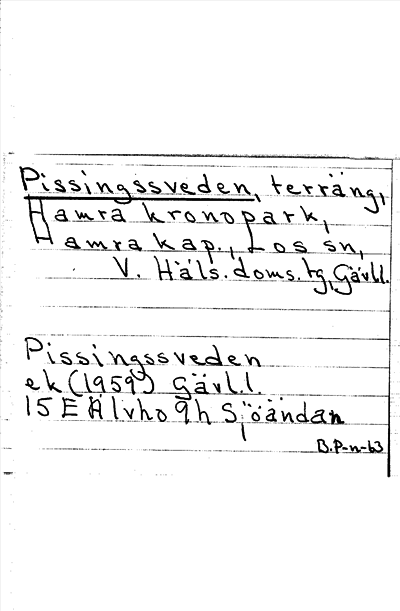 Pissingssveden, terräng,
Hamra kronopark,
Hamra kap., Los sn,
V. Häls. doms. tg, Gävll.
Pissingssveden
ek (1959) Gävl.l.
15 E Älvho 9h Sjöändan
B.P-n-63